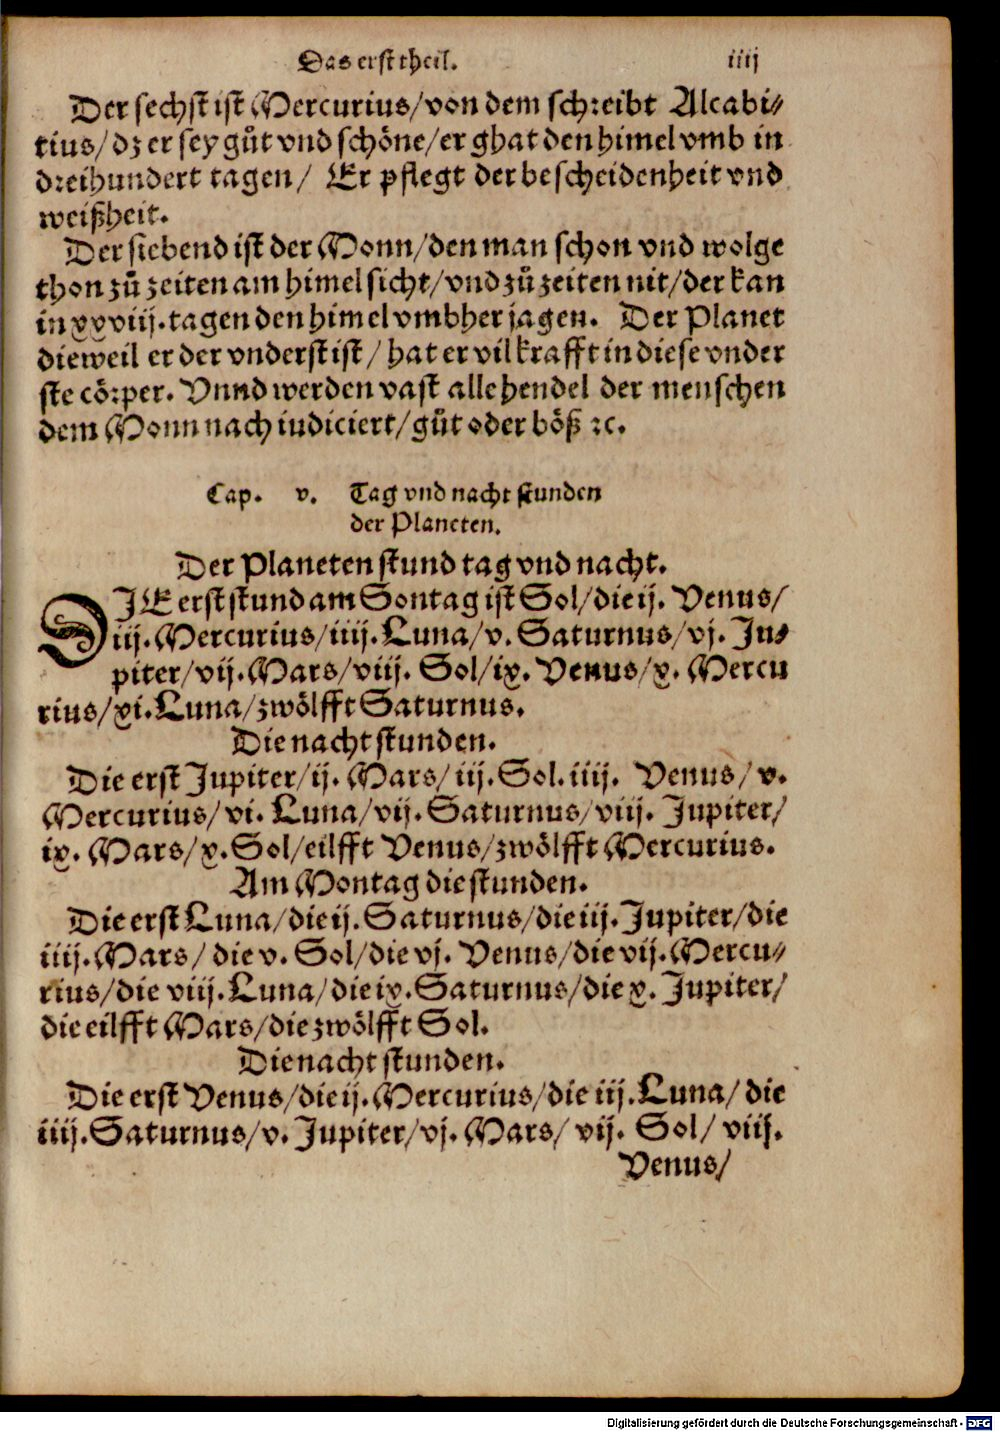 Das erst theil. iiij
Der sechst ist Mercurius/von dem schreibt Alcabi⸗
tius/dz er sey gůt vnd schöne/er ghat den himel vmb in
dreihundert tagen/ Er pflegt der bescheidenheit vnd
weißheit.
Der siebend ist der Monn/den man schon vnd wolge
thon zů zeiten am himel sicht/vnd zů zeiten nit/der kan
in xxviij.tagen den himel vmbher jagen. Der Planet
dieweil er der vnderst ist/ hat er vil krafft in diese vnder
ste cörper. Vnnd werden vast alle hendel der menschen
dem Monn nach iudiciert/gůt oder böß ꝛc.
Cap. v. Tag vnd nacht stunden
der Planeten.
Der Planeten stund tag vnd nacht.
DIE erst stund am Sontag ist Sol/die ij. Venus/
iij.Mercurius/iiij.Luna/v. Saturnus/vj. Ju⸗
piter/vij.Mars/viij. Sol/ix. Venus/x. Mercu
rius/xi.Luna/zwölfft Saturnus.
Die nacht stunden.
Die erst Jupiter/ij. Mars/iij.Sol.iiij. Venus/v.
Mercurius/vi. Luna/vij.Saturnus/viij. Jupiter/
ix. Mars/x.Sol/eilfft Venus/zwölfft Mercurius.
Am Montag die stunden.
Die erst Luna/die ij.Saturnus/die iij.Jupiter/die
iiij.Mars/ die v. Sol/die vj. Venus/die vij.Mercu⸗
rius/die viij.Luna/die ix.Saturnus/die x. Jupiter/
die eilfft Mars/die zwölfft Sol.
Die nacht stunden.
Die erst Venus/die ij.Mercurius/die iij.Luna/ die
iiij.Saturnus/v. Jupiter/vj. Mars/ vij. Sol/ viij.
Venus/
Digitalisierung gefördert durch die Deutsche Forschungsgemeinschaft - DFG